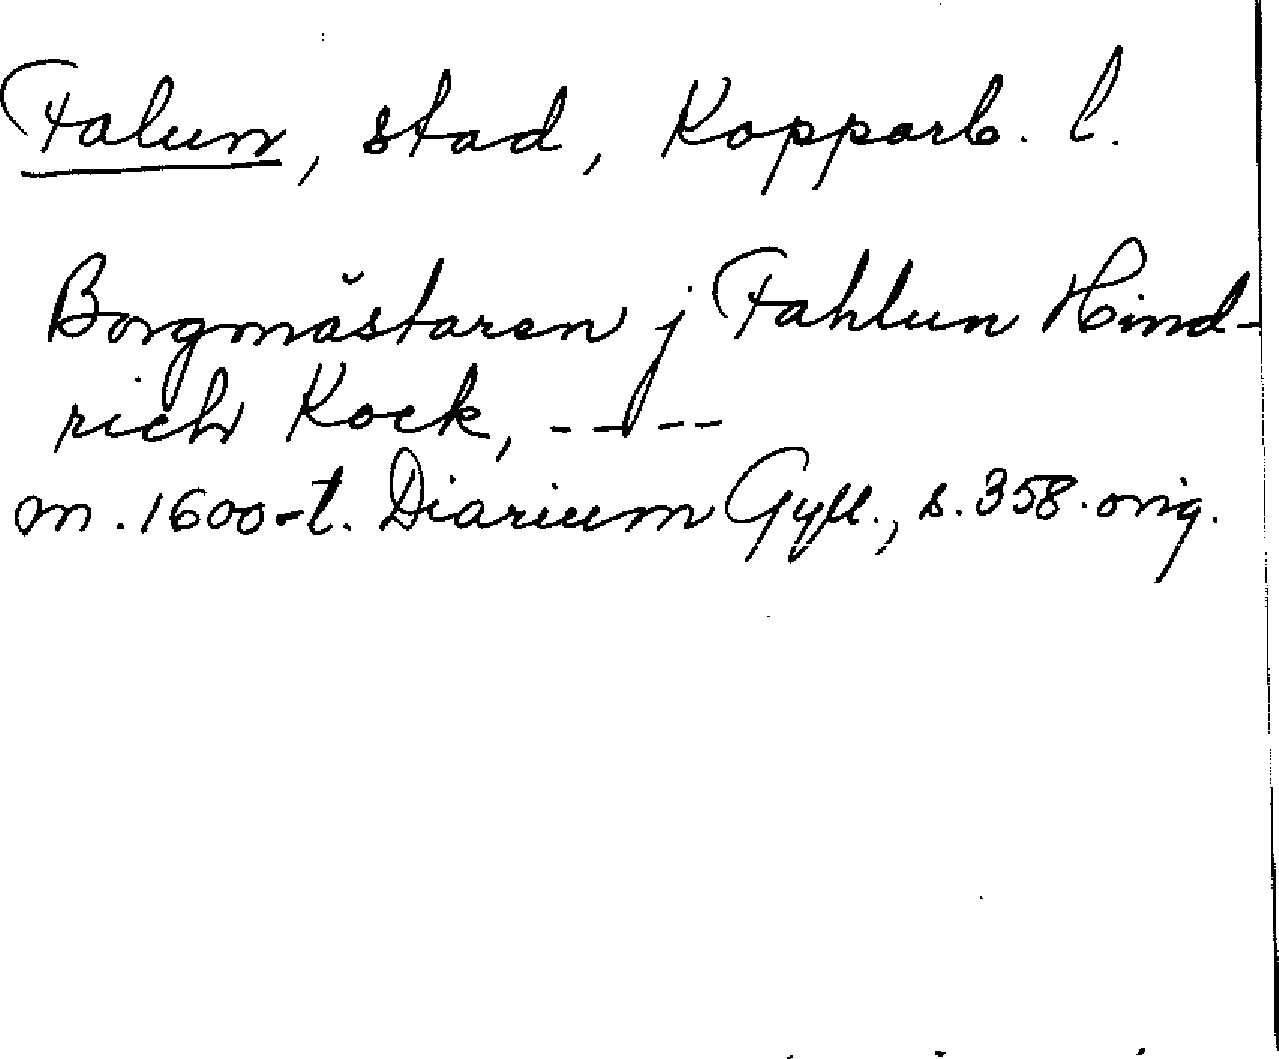 Falun, stad, Kopparb. l.
Borgmästaren j Fahlun Hind-
rich Kock, -----
m. 1600-t. Diarium Gyll., s. 358. orig.